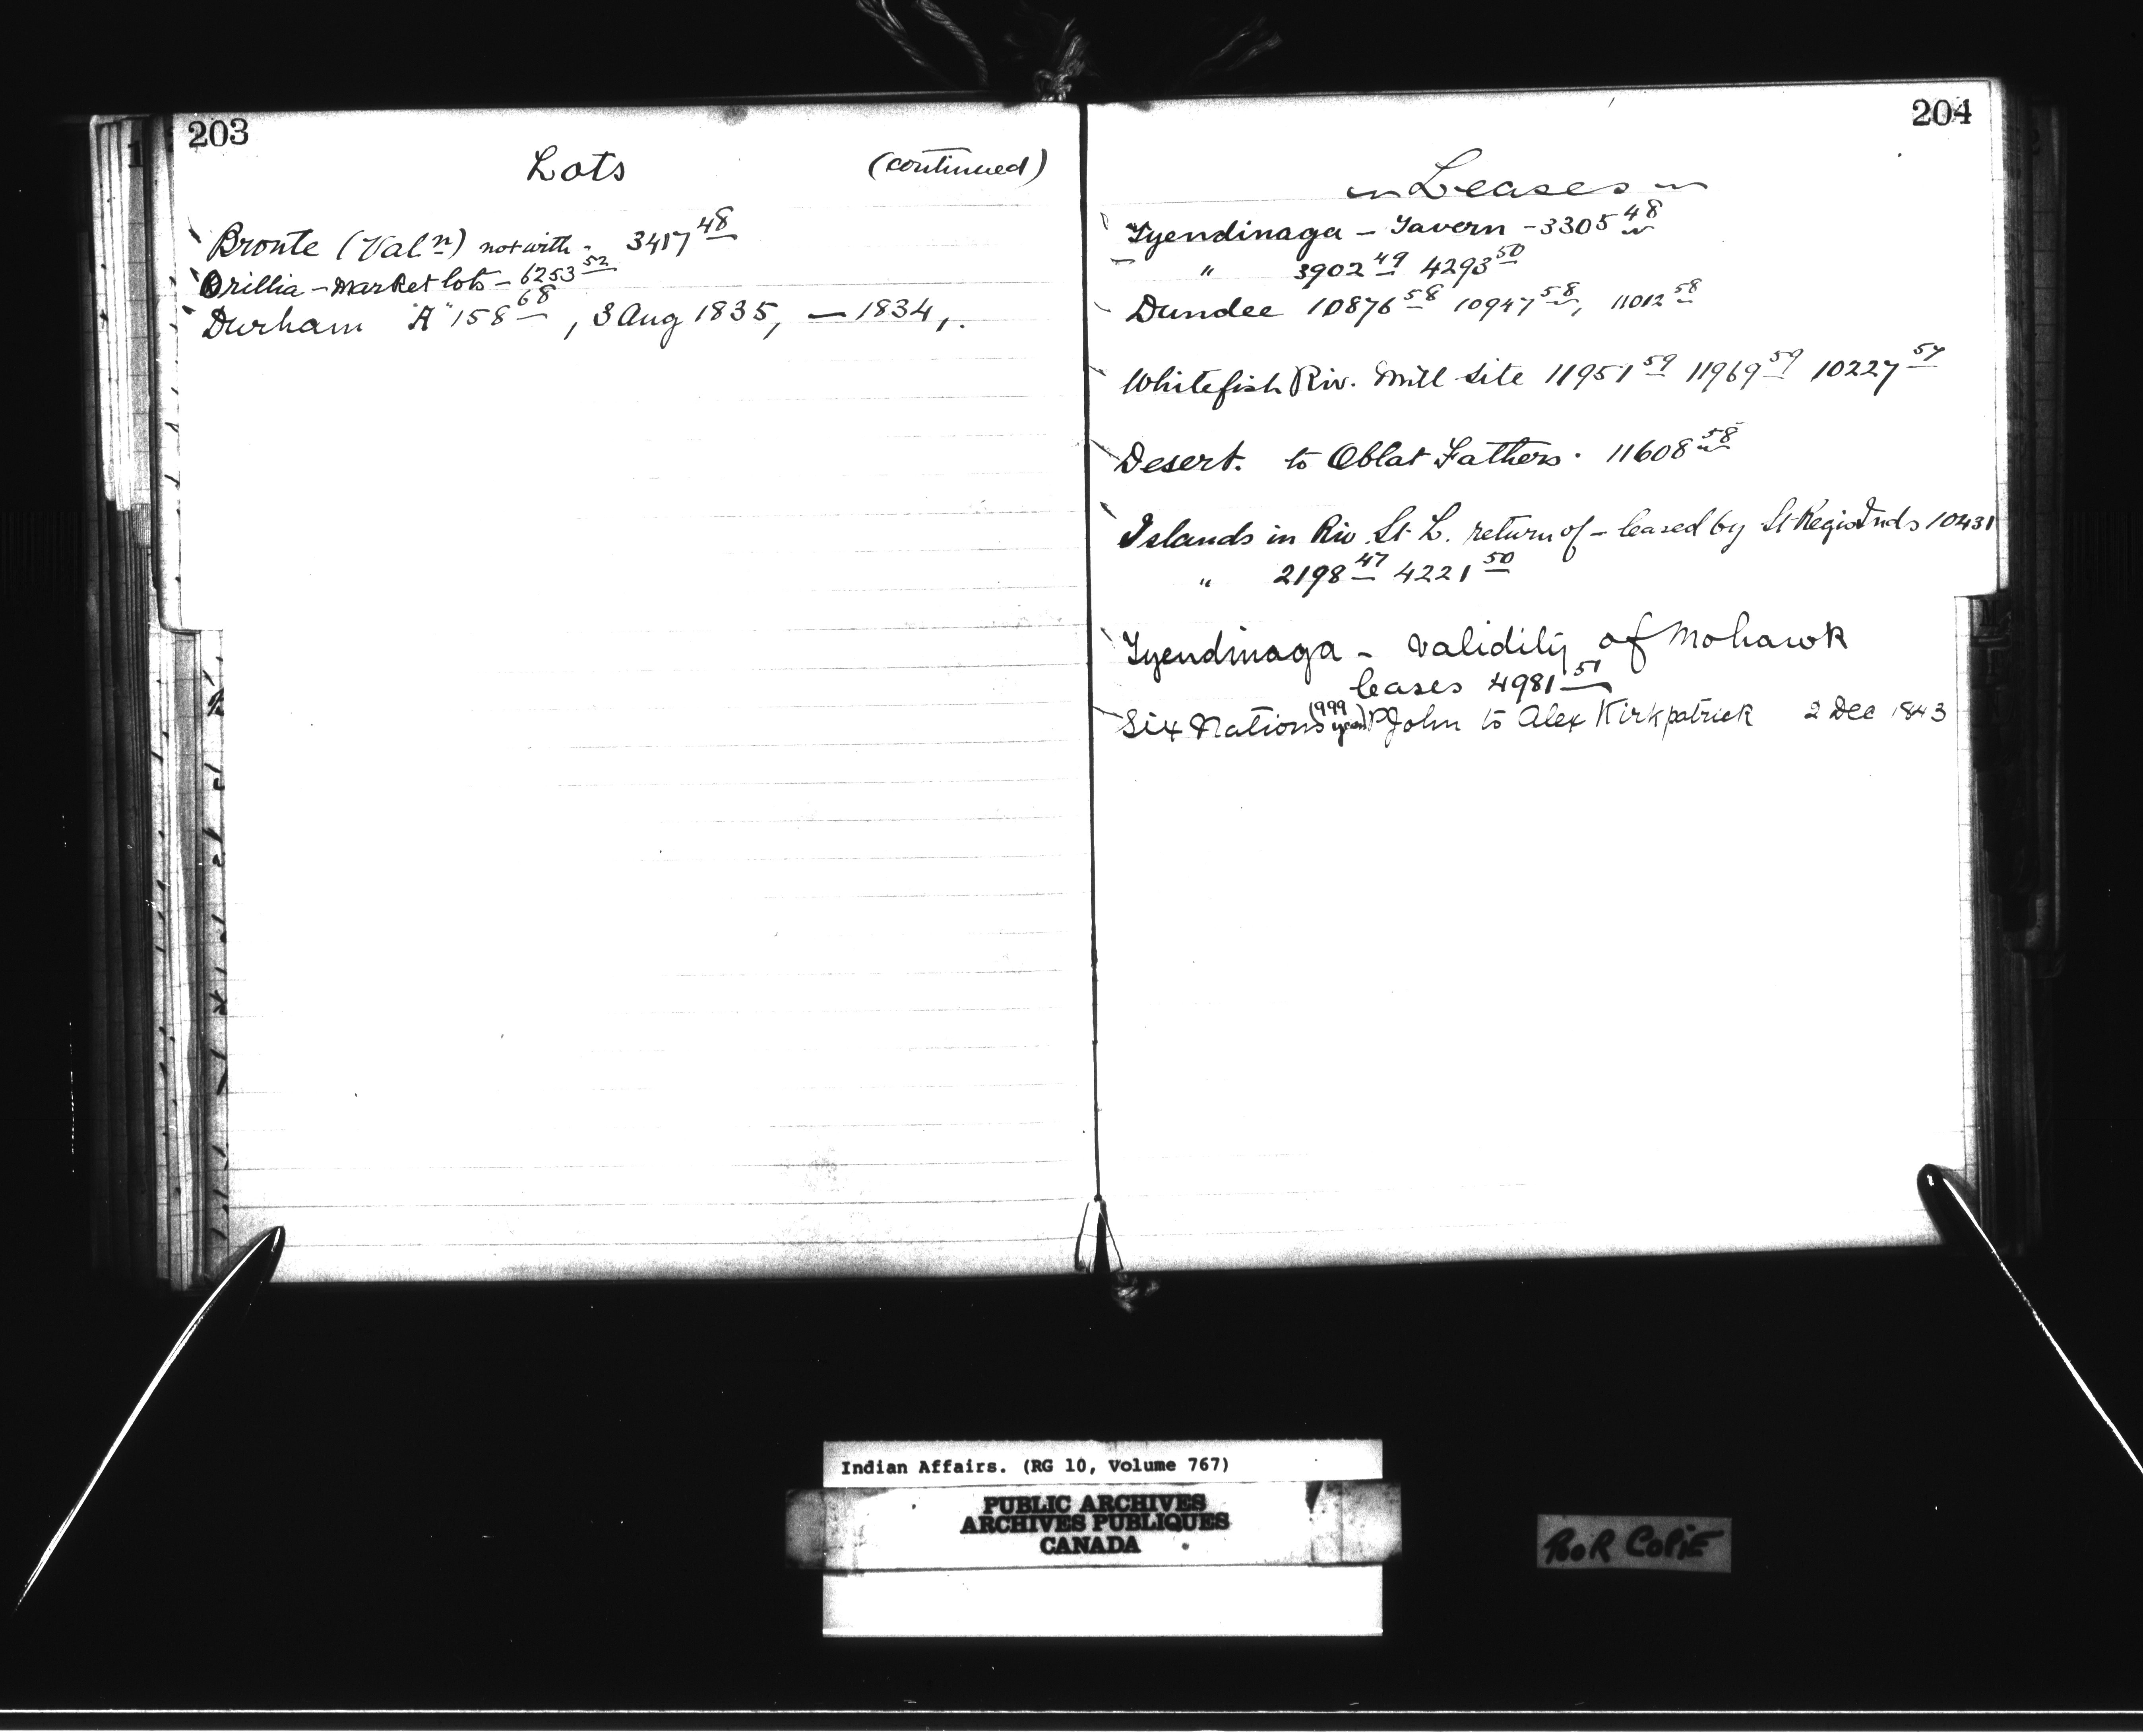 203
Lots (continued)
Bronte (Valn) not with - 3417 48
Orillia - Market lots - 6253 52
Durham "A" 158 68, 3 Aug 1835, — 1834,.
204
Leases
Tyendinaga - Tavern - 3305 48
" 3902 49 4293 50
Dundee 10876 58 10947 58, 11012 58
Whitefish Riv. Mill site 11951 59 11969 59 10227 57
Desert. to Oblat Fathers. 11608 58
Islands in Riv St L. return of - leased by St Regis Inds 10431
" 2198 47 4221 50
Tyendinaga - validity of Mohawk
leases 4981 51
Six Nations (999 years) P John to Alex Kirkpatrick 2 Dec 1843
Indian Affairs. (RG 10, Volume 767)
PUBLIC ARCHIVES
ARCHIVES PUBLIQUES
CANADA
POOR COPIE